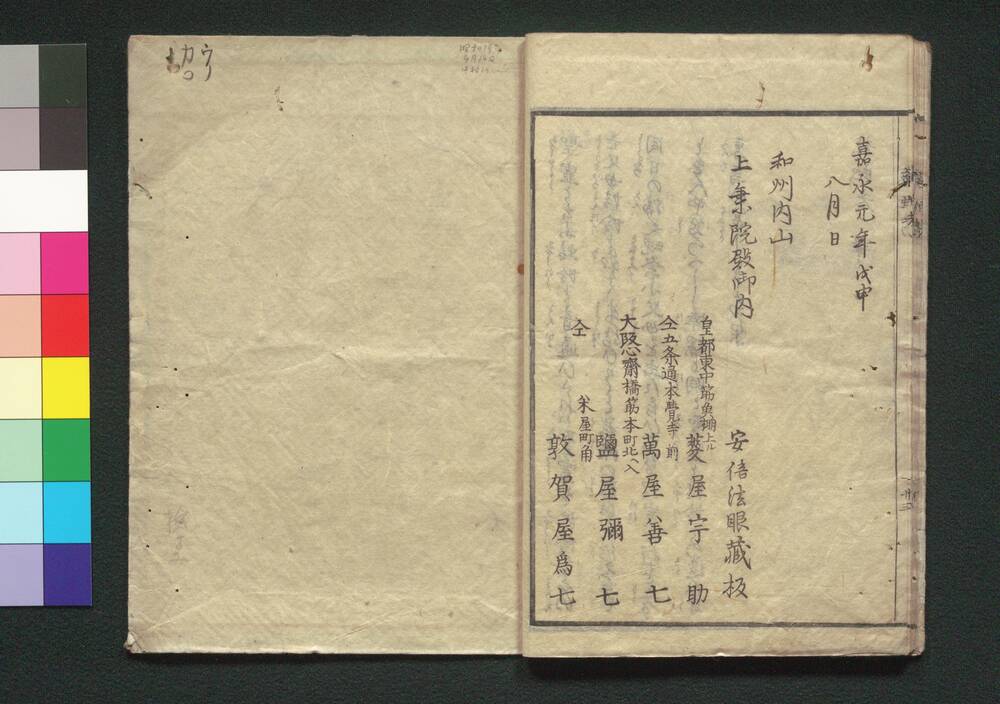 嘉永元年戊申
八月日
和州内山
上乗院殿御内
安倍法眼蔵板
皇都東中筋魚棚上ル
菱屋宇助
仝五条通本覺寺前
萬屋善七
大阪心齋橋筋本町北へ入
鹽屋彌七
仝 米屋町角
敦賀屋爲七
ウリ
カロ